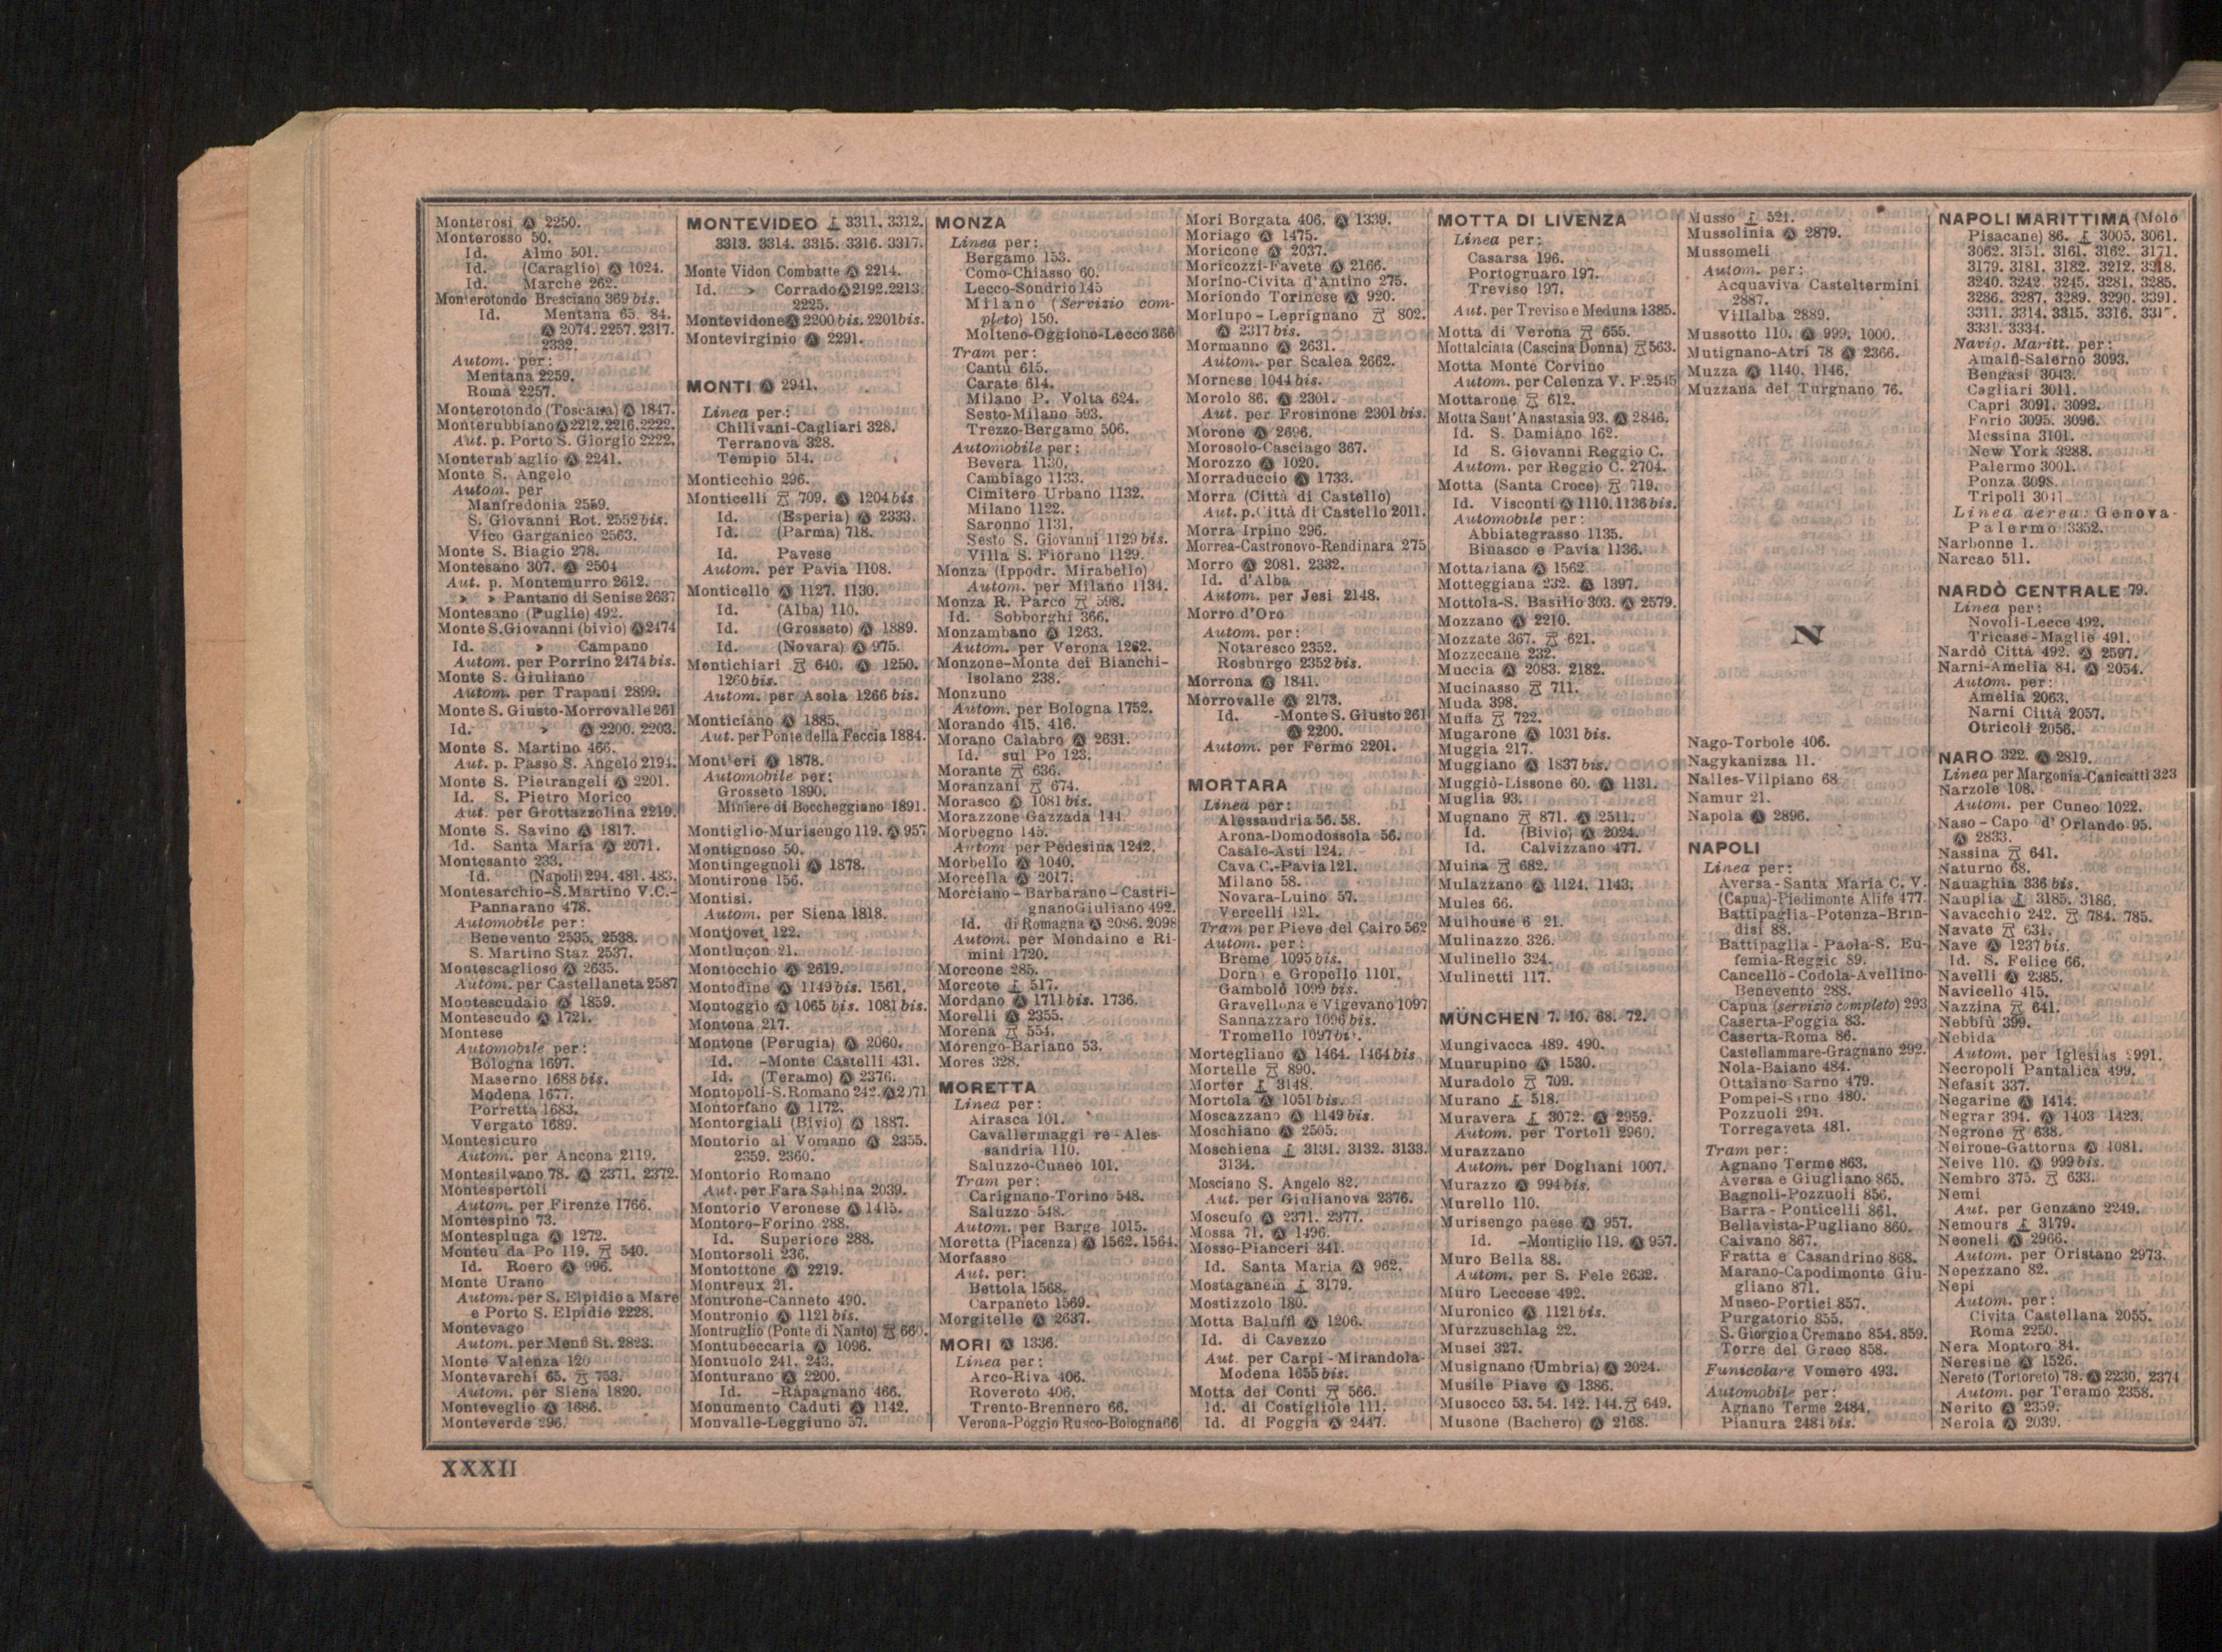 Monterosi Ⓐ 2250.
Monterosso 50.
Id. Almo 501.
Id. (Caraglio) Ⓐ 1024.
Id. Marche 262.
Monterotondo Bresciano 369 bis.
Id. Mentana 65. 84.
Ⓐ 2074. 2257. 2317.
2332.
Autom. per:
Mentana 2259.
Roma 2257.
Monterotondo (Toscana) Ⓐ 1847.
Monterubbiano Ⓐ 2212. 2216. 2222.
Aut. p. Porto S. Giorgio 2222.
Monterubaglio Ⓐ 2241.
Monte S. Angelo
Autom. per
Manfredonia 2559.
S. Giovanni Rot. 2552 bis.
Vico Garganico 2563.
Monte S. Biagio 278.
Montesano 307. Ⓐ 2504
Aut. p. Montemurro 2612.
» » Pantano di Senise 2637
Montesano (Puglie) 492.
Monte S. Giovanni (bivio) Ⓐ 2474
Id. » Campano
Autom. per Porrino 2474 bis.
Monte S. Giuliano
Autom. per Trapani 2899.
Monte S. Giusto-Morrovalle 261
Id. » Ⓐ 2200. 2203.
Monte S. Martino 466.
Aut. p. Passo S. Angelo 2194.
Monte S. Pietrangeli Ⓐ 2201.
Id. S. Pietro Morico
Aut. per Grottazzolina 2219.
Monte S. Savino Ⓐ 1817.
Id. Santa Maria Ⓐ 2071.
Montesanto 233.
Id. (Napoli) 294. 481. 483.
Montesarchio-S. Martino V.C.-
Pannarano 478.
Automobile per:
Benevento 2535. 2538.
S. Martino Staz 2537.
Montescaglioso Ⓐ 2635.
Autom. per Castellaneta 2587
Montescudaio Ⓐ 1859.
Montescudo Ⓐ 1721.
Montese
Automobile per:
Bologna 1697.
Maserno 1688 bis.
Modena 1677.
Porretta 1683.
Vergato 1689.
Montesicuro
Autom. per Ancona 2119.
Montesilvano 78. Ⓐ 2371. 2372.
Montespertoli
Autom. per Firenze 1766.
Montespino 73.
Montespluga Ⓐ 1272.
Monteu da Po 119. 540.
Id. Roero Ⓐ 996.
Monte Urano
Autom. per S. Elpidio a Mare
e Porto S. Elpidio 2228.
Montevago
Autom. per Menfi St. 2823.
Monte Valenza 120
Montevarchi 65. 753.
Autom. per Siena 1820.
Monteveglio Ⓐ 1686.
Monteverde 296.
MONTEVIDEO 3311. 3312.
3313. 3314. 3315. 3316. 3317.
Monte Vidon Combatte Ⓐ 2214.
Id. » Corrado Ⓐ 2192. 2213.
2225.
Montevidone Ⓐ 2200 bis. 2201 bis.
Montevirginio Ⓐ 2291.
MONTI Ⓐ 2941.
Linea per:
Chilivani-Cagliari 328.
Terranova 328.
Tempio 514.
Monticchio 296.
Monticelli 709. Ⓐ 1204 bis
Id. (Esperia) Ⓐ 2333.
Id. (Parma) 718.
Id. Pavese
Autom. per Pavia 1108.
Monticello Ⓐ 1127. 1130.
Id. (Alba) 110.
Id. (Grosseto) Ⓐ 1889.
Id. (Novara) Ⓐ 975.
Montichiari 640. Ⓐ 1250.
1260 bis.
Autom. per Asola 1266 bis.
Monticiano Ⓐ 1885.
Aut. per Ponte della Feccia 1884.
Montieri Ⓐ 1878.
Automobile per:
Grosseto 1890.
Miniere di Boccheggiano 1891.
Montiglio-Murisengo 119. Ⓐ 957
Montignoso 50.
Montingegnoli Ⓐ 1878.
Montirone 156.
Montisi.
Autom. per Siena 1818.
Montjovet 122.
Montluçon 21.
Montocchio Ⓐ 2619.
Montodine Ⓐ 1149 bis. 1561.
Montoggio Ⓐ 1065 bis. 1081 bis.
Montona 217.
Montone (Perugia) Ⓐ 2060.
Id. -Monte Castelli 431.
Id. (Teramo) Ⓐ 2376.
Montopoli-S. Romano 242. Ⓐ 2071
Montorfano Ⓐ 1172.
Montorgiali (Bivio) Ⓐ 1887.
Montorio al Vomano Ⓐ 2355.
2359. 2360.
Montorio Romano
Aut. per Fara Sabina 2039.
Montorio Veronese Ⓐ 1415.
Montoro-Forino 288.
Id. Superiore 288.
Montorsoli 236.
Montottone Ⓐ 2219.
Montreux 21.
Montrone-Canneto 490.
Montronio Ⓐ 1121 bis.
Montruglio (Ponte di Nanto) 660.
Montubeccaria Ⓐ 1096.
Montuolo 241. 243.
Monturano Ⓐ 2200.
Id. -Rapagnano 466.
Monumento Caduti Ⓐ 1142.
Monvalle-Leggiuno 57.
MONZA
Linea per:
Bergamo 153.
Como-Chiasso 60.
Lecco-Sondrio 145
Milano (Servizio com-
pleto) 150.
Molteno-Oggiono-Lecco 366
Tram per:
Cantù 615.
Carate 614.
Milano P. Volta 624.
Sesto-Milano 593.
Trezzo-Bergamo 506.
Automobile per:
Bevera 1130.
Cambiago 1133.
Cimitero Urbano 1132.
Milano 1122.
Saronno 1131.
Sesto S. Giovanni 1129 bis.
Villa S. Fiorano 1129.
Monza (Ippodr. Mirabello)
Autom. per Milano 1134.
Monza R. Parco 598.
Id. Sobborghi 366.
Monzambano Ⓐ 1263.
Autom. per Verona 1262.
Monzone-Monte dei Bianchi-
Isolano 238.
Monzuno
Autom. per Bologna 1752.
Morando 415. 416.
Morano Calabro Ⓐ 2631.
Id. sul Po 123.
Morante 636.
Moranzani 674.
Morasco Ⓐ 1081 bis.
Morazzone-Gazzada 144.
Morbegno 145.
Autom per Pedesina 1242.
Morbello Ⓐ 1040.
Morcella Ⓐ 2017.
Morciano-Barbarano-Castri-
gnano Giuliano 492.
Id. di Romagna Ⓐ 2086. 2098
Autom. per Mondaino e Ri-
mini 1720.
Morcone 285.
Morcote 517.
Mordano Ⓐ 1711 bis. 1736.
Morelli Ⓐ 2355.
Morena 554.
Morengo-Bariano 53.
Mores 328.
MORETTA
Linea per:
Airasca 101.
Cavallermaggiore-Ales-
sandria 110.
Saluzzo-Cuneo 101.
Tram per:
Carignano-Torino 548.
Saluzzo 548.
Autom. per Barge 1015.
Moretta (Piacenza) Ⓐ 1562. 1564.
Morfasso
Aut. per:
Bettola 1568.
Carpaneto 1569.
Morgitelle Ⓐ 2637.
MORI Ⓐ 1336.
Linea per:
Arco-Riva 406.
Rovereto 406.
Trento-Brennero 66.
Verona-Poggio Rusco-Bologna 66
Mori Borgata 406. Ⓐ 1339.
Moriago Ⓐ 1475.
Moricone Ⓐ 2037.
Moricozzi-Favete Ⓐ 2166.
Morino-Civita d'Antino 275.
Moriondo Torinese Ⓐ 920.
Morlupo-Leprignano 802.
Ⓐ 2317 bis.
Mormanno Ⓐ 2631.
Autom. per Scalea 2662.
Mornese 1044 bis.
Morolo 86. Ⓐ 2301.
Aut. per Frosinone 2301 bis.
Morone Ⓐ 2696.
Morosolo-Casciago 367.
Morozzo Ⓐ 1020.
Morraduccio Ⓐ 1733.
Morra (Città di Castello)
Aut. p. Città di Castello 2011.
Morra Irpino 296.
Morrea-Castronovo-Rendinara 275
Morro Ⓐ 2081. 2332.
Id. d'Alba
Autom. per Jesi 2148.
Morro d'Oro
Autom. per:
Notaresco 2352.
Rosburgo 2352 bis.
Morrona Ⓐ 1841.
Morrovalle Ⓐ 2173.
Id. -Monte S. Giusto 261
Ⓐ 2200.
Autom. per Fermo 2201.
MORTARA
Linea per:
Alessandria 56. 58.
Arona-Domodossola 56.
Casale-Asti 124.
Cava C.-Pavia 121.
Milano 58.
Novara-Luino 57.
Vercelli 121.
Tram per Pieve del Cairo 562
Autom. per:
Breme 1095 bis.
Dorno e Gropello 1101.
Gambolò 1099 bis.
Gravellona e Vigevano 1097
Sannazzaro 1096 bis.
Tromello 1097 bis.
Mortegliano Ⓐ 1464. 1464 bis
Mortelle 890.
Morter 3148.
Mortola Ⓐ 1051 bis.
Moscazzano Ⓐ 1149 bis.
Moschiano Ⓐ 2505.
Moschiena 3131. 3132. 3133.
3134.
Mosciano S. Angelo 82.
Aut. per Giulianova 2376.
Moscufo Ⓐ 2371. 2377.
Mossa 71. Ⓐ 1496.
Mosso-Pianceri 341.
Id. Santa Maria Ⓐ 962.
Mostaganem 3179.
Mostizzolo 180.
Motta Baluffi Ⓐ 1206.
Id. di Cavezzo
Aut. per Carpi-Mirandola-
Modena 1655 bis.
Motta dei Conti 566.
Id. di Costigliole 111.
Id. di Foggia Ⓐ 2447.
MOTTA DI LIVENZA
Linea per:
Casarsa 196.
Portogruaro 197.
Treviso 197.
Aut. per Treviso e Meduna 1385.
Motta di Verona 655.
Mottalciata (Cascina Donna) 563.
Motta Monte Corvino
Autom. per Celenza V. F. 2545
Mottarone 612.
Motta Sant'Anastasia 93. Ⓐ 2846.
Id. S. Damiano 162.
Id S. Giovanni Reggio C.
Autom. per Reggio C. 2704.
Motta (Santa Croce) 719.
Id. Visconti Ⓐ 1110. 1136 bis.
Automobile per:
Abbiategrasso 1135.
Binasco e Pavia 1136.
Mottaziana Ⓐ 1562.
Motteggiana 232. Ⓐ 1397.
Mottola-S. Basilio 303. Ⓐ 2579.
Mozzano Ⓐ 2210.
Mozzate 367. 621.
Mozzecane 232.
Muccia Ⓐ 2083. 2182.
Mucinasso 711.
Muda 398.
Muffa 722.
Mugarone Ⓐ 1031 bis.
Muggia 217.
Muggiano Ⓐ 1837 bis.
Muggiò-Lissone 60. Ⓐ 1131.
Muglia 93.
Mugnano 871. Ⓐ 2511.
Id. (Bivio) Ⓐ 2024.
Id. Calvizzano 477.
Muina 682.
Mulazzano Ⓐ 1124. 1143.
Mules 66.
Mulhouse 6 21.
Mulinazzo 326.
Mulinello 324.
Mulinetti 117.
MÜNCHEN 7. 10. 68. 72.
Mungivacca 489. 490.
Munrupino Ⓐ 1530.
Muradolo 709.
Murano 518.
Muravera 3072. Ⓐ 2959.
Autom. per Tortolì 2960.
Murazzano
Autom. per Dogliani 1007.
Murazzo Ⓐ 994 bis.
Murello 110.
Murisengo paese Ⓐ 957.
Id. -Montiglio 119. Ⓐ 957.
Muro Bella 88.
Autom. per S. Fele 2632.
Muro Leccese 492.
Muronico Ⓐ 1121 bis.
Murzzuschlag 22.
Musei 327.
Musignano (Umbria) Ⓐ 2024.
Musile Piave Ⓐ 1386.
Musocco 53. 54. 142. 144. 649.
Musone (Bachero) Ⓐ 2168.
Musso 521.
Mussolinia Ⓐ 2879.
Mussomeli
Autom. per:
Acquaviva Casteltermini
2887.
Villalba 2889.
Mussotto 110. Ⓐ 999. 1000.
Mutignano-Atri 78 Ⓐ 2366.
Muzza Ⓐ 1140. 1146.
Muzzana del Turgnano 76.
N
Nago-Torbole 406.
Nagykanizsa 11.
Nalles-Vilpiano 68
Namur 21.
Napola Ⓐ 2896.
NAPOLI
Linea per:
Aversa-Santa Maria C. V.
(Capua)-Piedimonte Alife 477.
Battipaglia-Potenza-Brin-
disi 88.
Battipaglia-Paola-S. Eu-
femia-Reggio 89.
Cancello-Codola-Avellino-
Benevento 288.
Capua (servizio completo) 293
Caserta-Foggia 83.
Caserta-Roma 86.
Castellammare-Gragnano 292.
Nola-Baiano 484.
Ottaiano Sarno 479.
Pompei-Sarno 480.
Pozzuoli 294.
Torregaveta 481.
Tram per:
Agnano Terme 863.
Aversa e Giugliano 865.
Bagnoli-Pozzuoli 856.
Barra-Ponticelli 861.
Bellavista-Pugliano 860.
Caivano 867.
Fratta e Casandrino 868.
Marano-Capodimonte Giu-
gliano 871.
Museo-Portici 857.
Purgatorio 855.
S. Giorgio a Cremano 854. 859.
Torre del Greco 858.
Funicolare Vomero 493.
Automobile per:
Agnano Terme 2484.
Pianura 2484 bis.
NAPOLI MARITTIMA (Molo
Pisacane) 86. 3005. 3061.
3062. 3151. 3161. 3162. 3171.
3179. 3181. 3182. 3212. 3218.
3240. 3242. 3245. 3281. 3285.
3286. 3287. 3289. 3290. 3391.
3311. 3314. 3315. 3316.
3331. 3334.
Navig. Maritt. per:
Amalfi-Salerno 3093.
Bengasi 3043.
Cagliari 3011.
Capri 3091. 3092.
Forio 3095. 3096.
Messina 3101.
New York 3288.
Palermo 3001.
Ponza 3098.
Tripoli 3041
Linea aerea: Genova-
Palermo 3352.
Narbonne 1.
Narcao 511.
NARDÒ CENTRALE 79.
Linea per:
Novoli-Lecce 492.
Tricase-Maglie 491.
Nardò Città 492. Ⓐ 2597.
Narni-Amelia 84. Ⓐ 2054.
Autom. per:
Amelia 2063.
Narni Città 2057.
Otricoli 2056.
NARO 322. Ⓐ 2819.
Linea per Margonia-Canicattì 323
Narzole 108.
Autom. per Cuneo 1022.
Naso-Capo d'Orlando 95.
Ⓐ 2833.
Nassina 641.
Naturno 68.
Nauaghia 336 bis.
Nauplia 3185. 3186.
Navacchio 242. 784. 785.
Navate 631.
Nave Ⓐ 1237 bis.
Id. S. Felice 66.
Navelli Ⓐ 2385.
Navicello 415.
Nazzina 641.
Nebbiù 399.
Nebida
Autom. per Iglesias 2991.
Necropoli Pantalica 499.
Nefasit 337.
Negarine Ⓐ 1414.
Negrar 394. Ⓐ 1403 1423.
Negrone 638.
Neirone-Gattorna Ⓐ 1081.
Neive 110. Ⓐ 999 bis.
Nembro 375. 633.
Nemi
Aut. per Genzano 2249.
Nemours 3179.
Neoneli Ⓐ 2966.
Autom. per Oristano 2973.
Nepezzano 82.
Nepi
Autom. per:
Civita Castellana 2055.
Roma 2250.
Nera Montoro 84.
Neresine Ⓐ 1526.
Nereto (Tortoreto) 78. Ⓐ 2230. 2374
Autom. per Teramo 2358.
Nerito Ⓐ 2359.
Nerola Ⓐ 2039.
XXXII